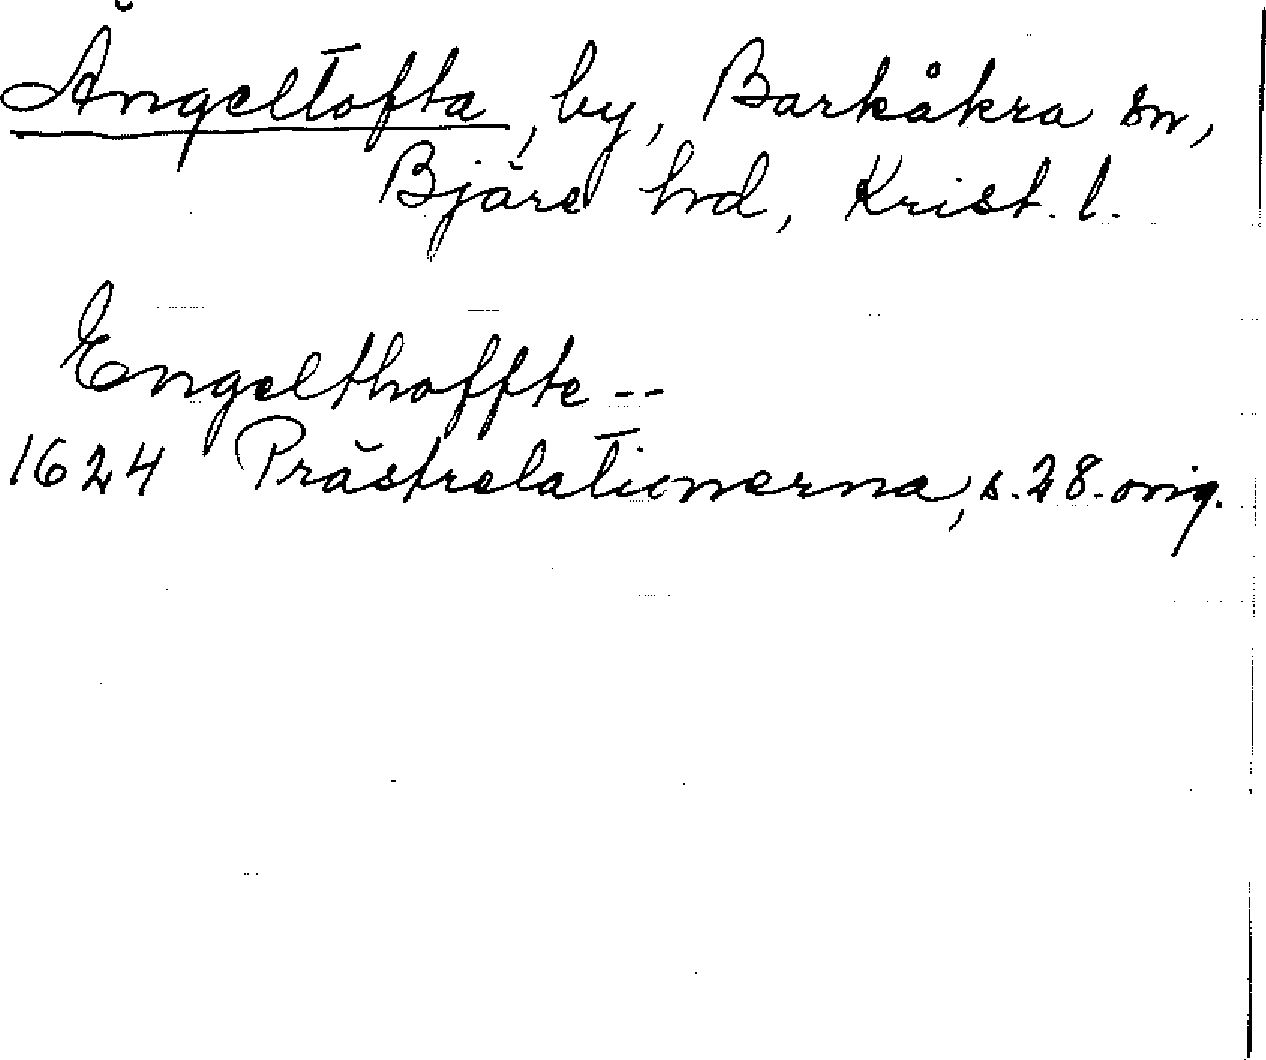 Ängeltofta, by, Barkåkra sn,
Bjäre hd, Krist. l.
Engelthoffte --
1624 Prästrelationerna, s. 28. orig.